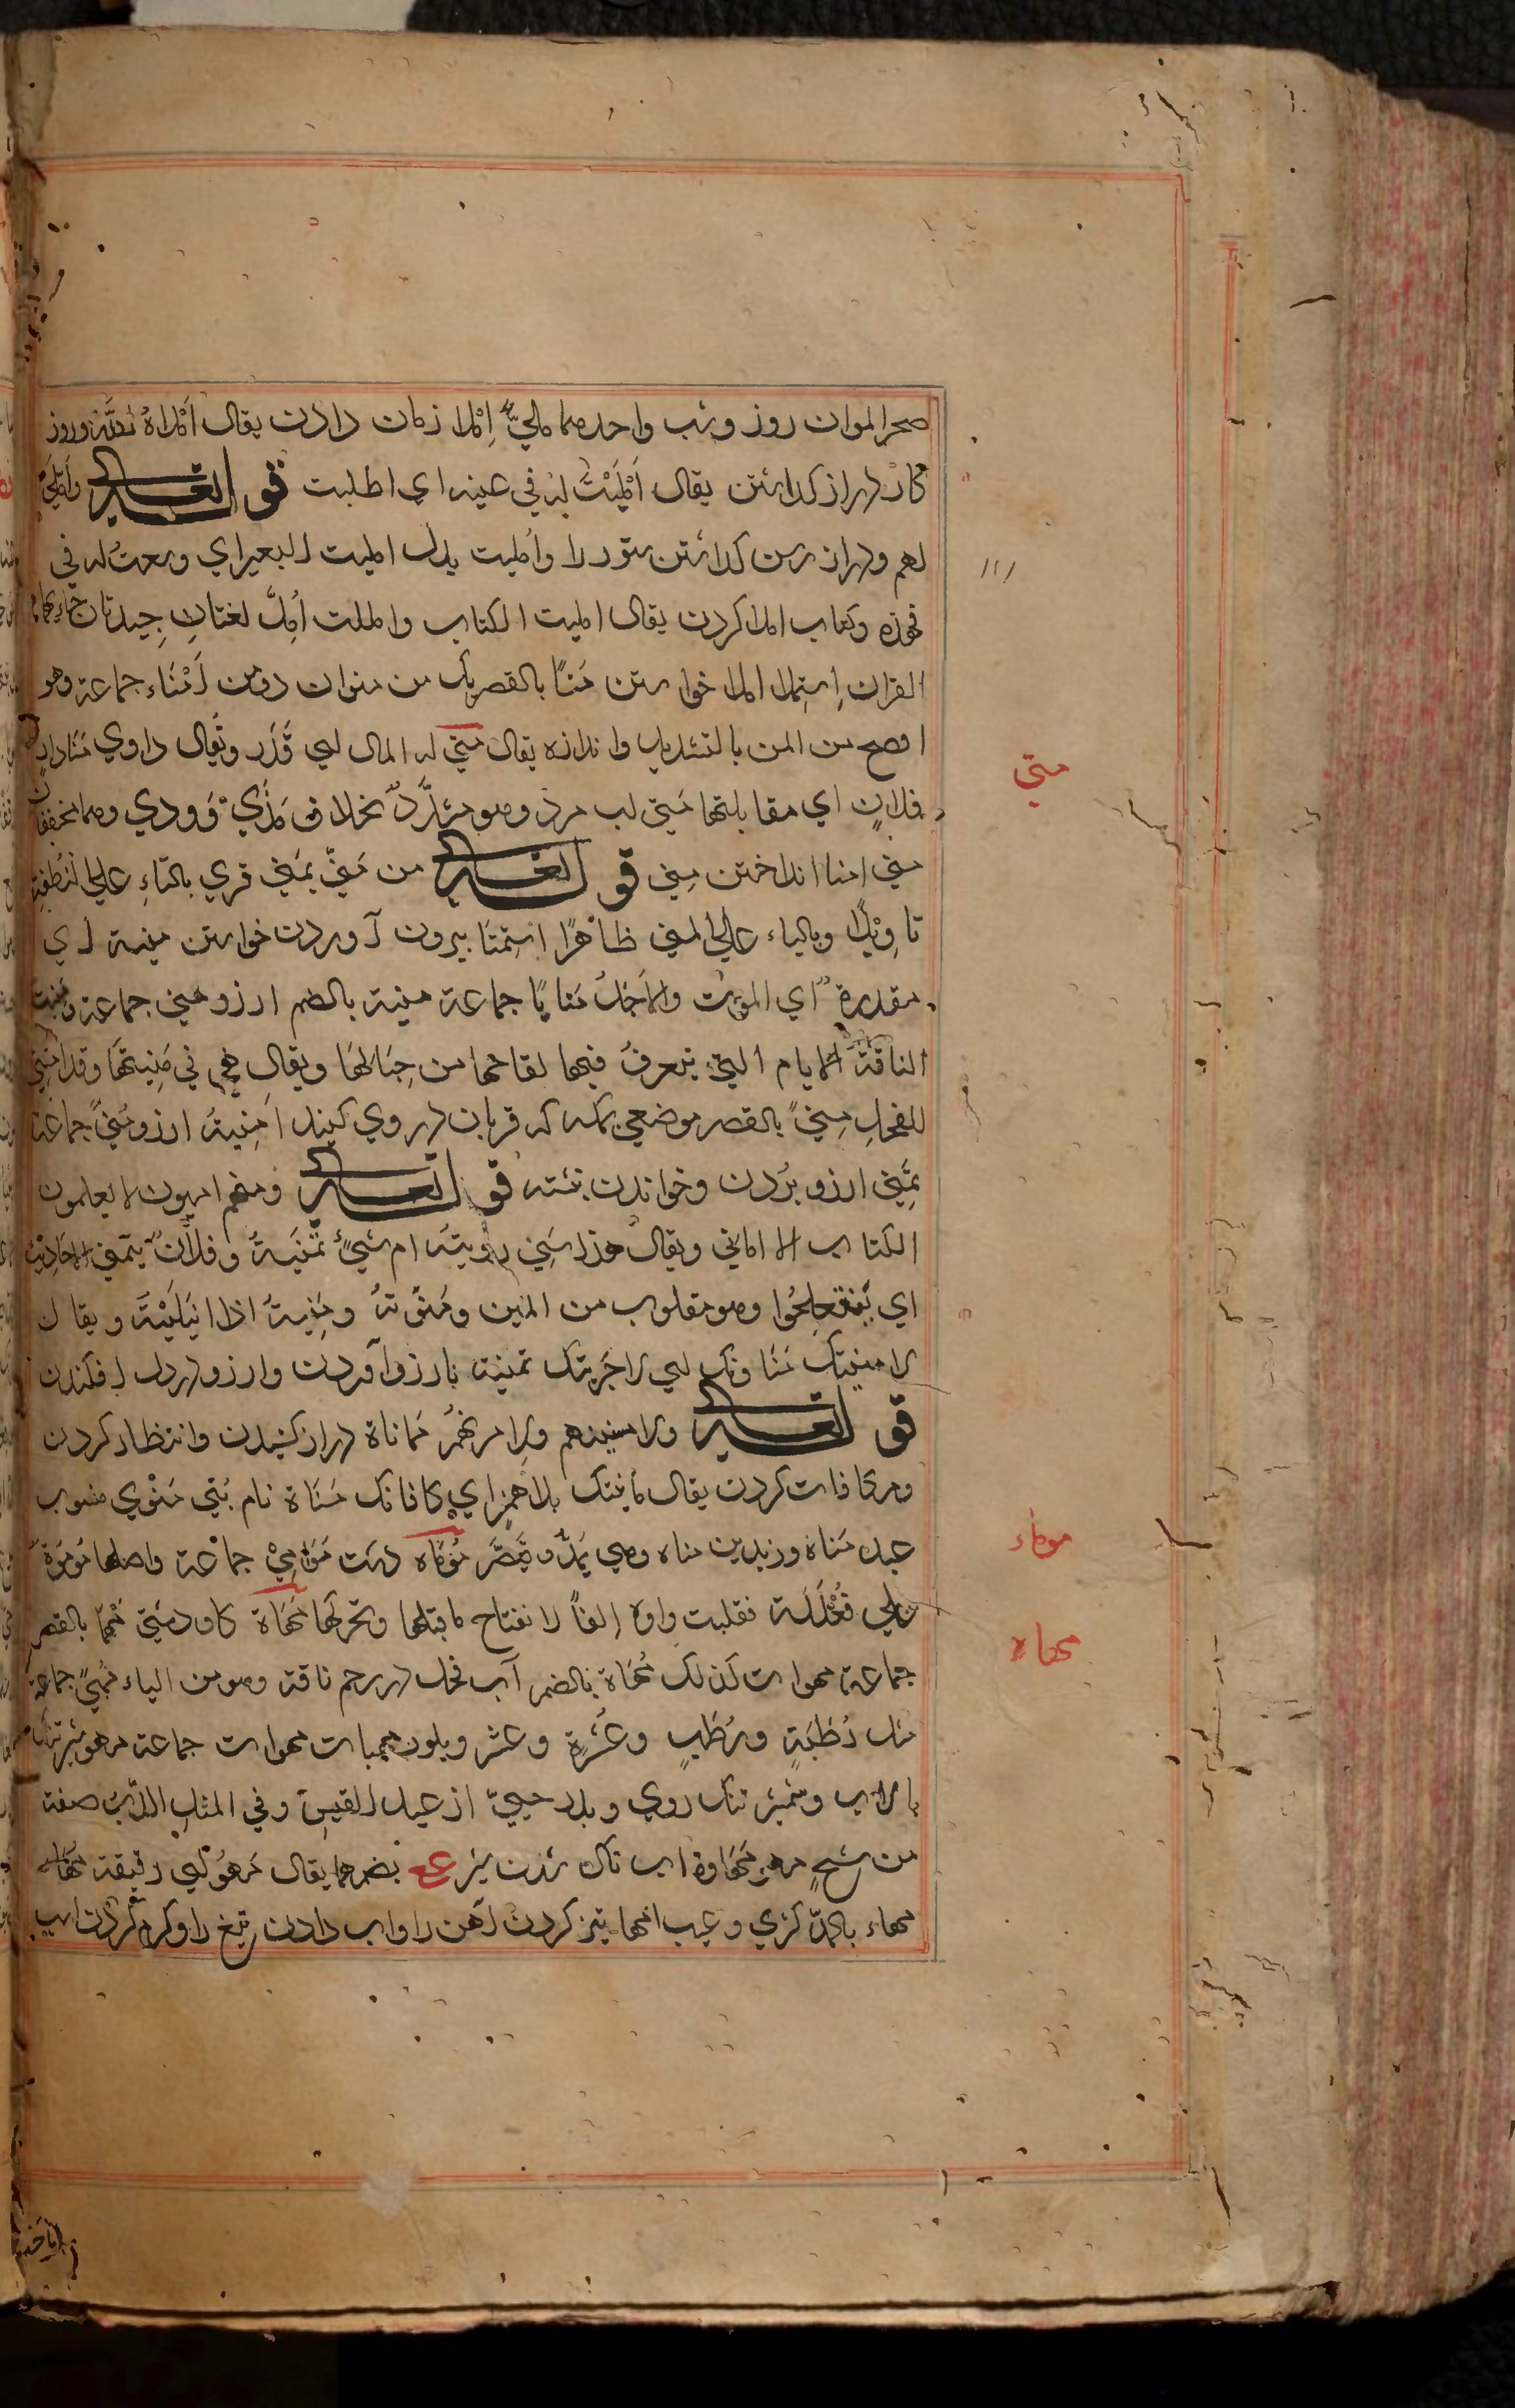 صحرا الموان روز وشب واحدهما ملي إملا زمان دادن يقال أملاه الله وروز
كار دراز كداشتن يقال أمليت له في غيه اي اطلت قوله تعالى وأملي
لهم ودراز رسن كداشتن ستور را وأمليت يدل امليت البعير اي وسعت له في
قيده وكتاب املا كردن يقال امليت الكتاب واملت أمل لغتان جيدتان جاء بهما
القران استملا املا خواستن منا بالقصر يك من منوان دومن أمناء جماعة وهو
افصح من المن بالتشديد واندازه يقال مني له المال اي قدر ويقال داري منا دار
فلان اي مقابلتها مني اب مرد وهو مشدد بخلاف مذي وودي وهما مخففان
مني امنا انداختن مني قوله تعالى من مني يمنى قري بالتاء على النطفة
تاويلا وبالياء على المني ظاهرا استمنا بيرون آوردن خواستن منية اي
مقدرة اي الموت والاجل منايا جماعة منية بالضم ارزو منى جماعة ومنية
الناقة الايام التي يتعرف فيها لقاحها من حيالها ويقال هي في منيتها وقد امتنى
للفحل منى بالقصر موضعي بمكه كه قربان در وي كنند امنية ارزو مني جماعة
تمنى ارزو بردن وخواندن نبشته قوله تعالى ومنهم اميون لا يعلمون
الكتاب الا اماني ويقال هذا شي رويته ام شي تمنيته وفلان يتمنى الاحاديث
اي يفتعلها وهو مقلوب من المين ومنوته ومنيته اذا ابتليته ويقال
لامنينك مناوتك اي لاجزينك تمنية بارزو آوردن وارزو در دل افكندن
قوله تعالى ولامنينهم ولامرنهم مماناة دراز كشيدن وانتظار كردن
ومكافات كردن يقال مانيتك بلا همز اي كافاتك مناة نام بتي منوي منسوب
عبد مناة وزيد بن مناه وهي يمد ويقصر موماه دشت موامي جماعة واصلها موموة
على فعللة فقلبت واوه الفا لانفتاح ما قبلها وتحركها مهاة كاو دشتي مها بالقصر
جماعة مهوات كذلك مهاة بالضم آب فحل در رحم ناقة وهو من الياء مهى جماعة
مثل رطبة ورطب وعشرة وعشر وبلور مهيات مهوات جماعة مهو شير تنك
با آب وشمشير تنك روي وبدر حيي از عبد القيس وفي المثل
من شيخ مهو مهاوة اب ناك شدن شير ع بضمهما يقال مهو اي رقيقة
مهاء بالمد كژي وعيب امها تيز كردن آهن را واب دادن تيغ را وكرم كردن اسب
مني
موماء
مهاه